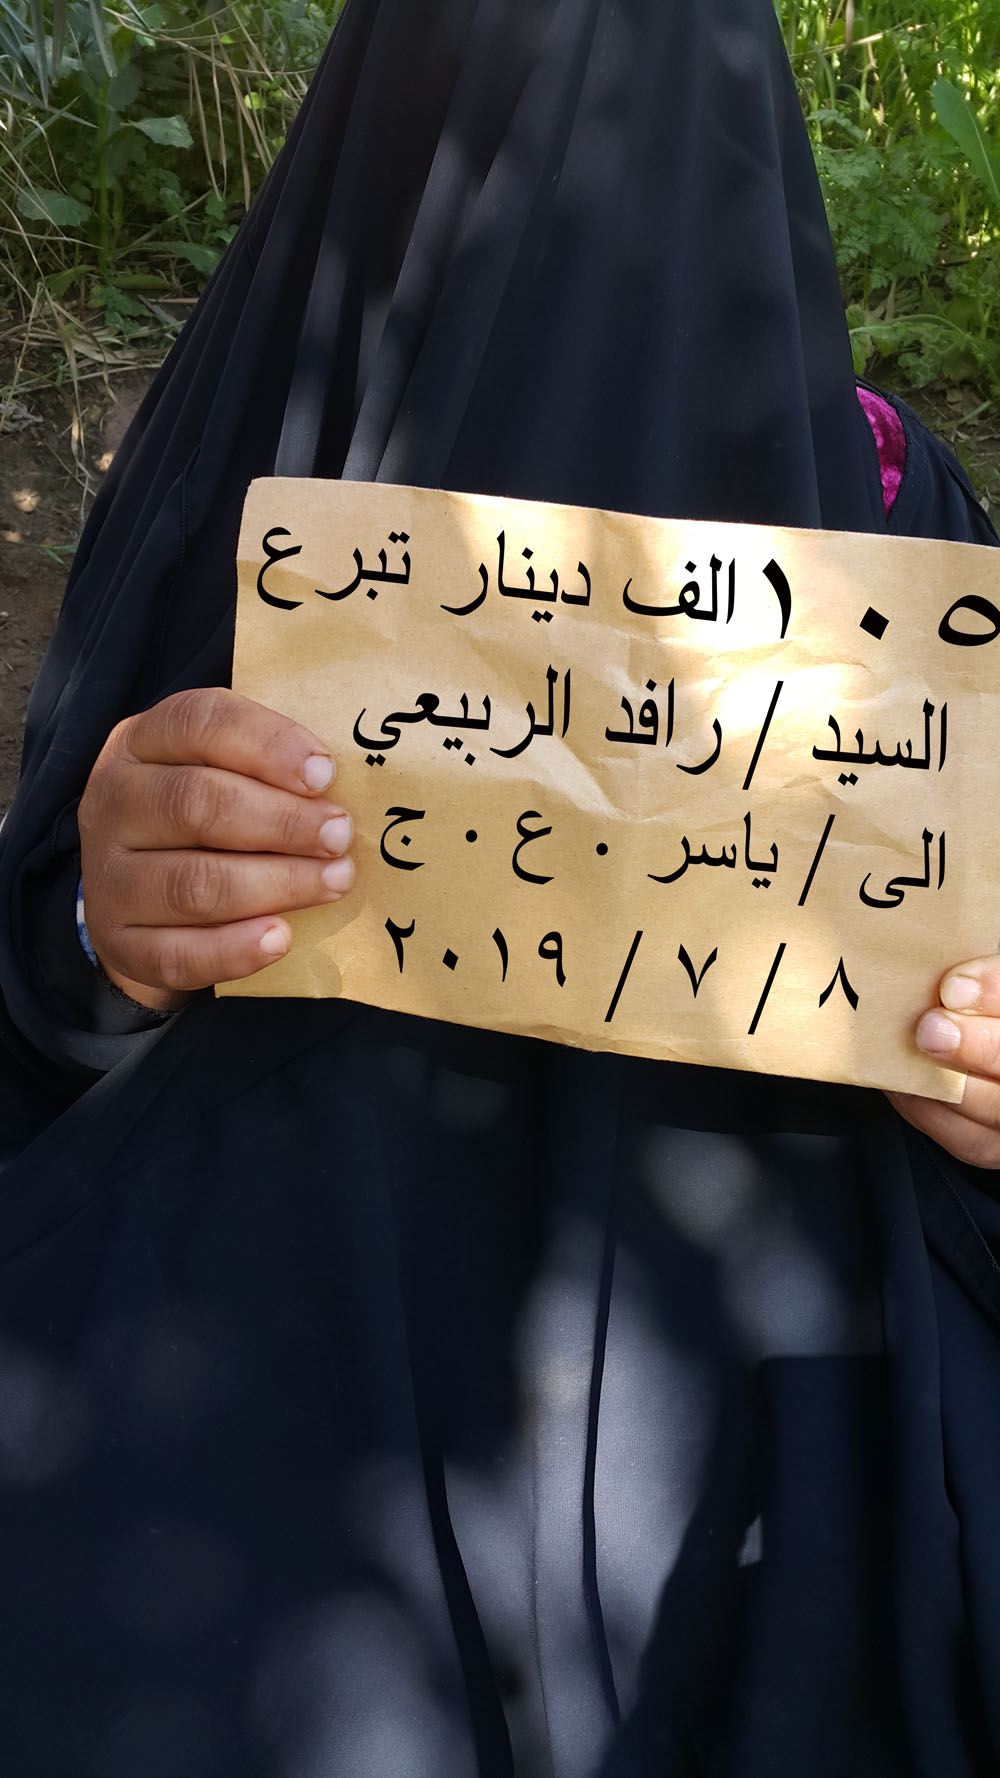 ١٠٥ الف دينار تبرع
السيد / رافد الربيعي
الى / ياسر . ع . ج
٨ / ٧ / ٢٠١٩